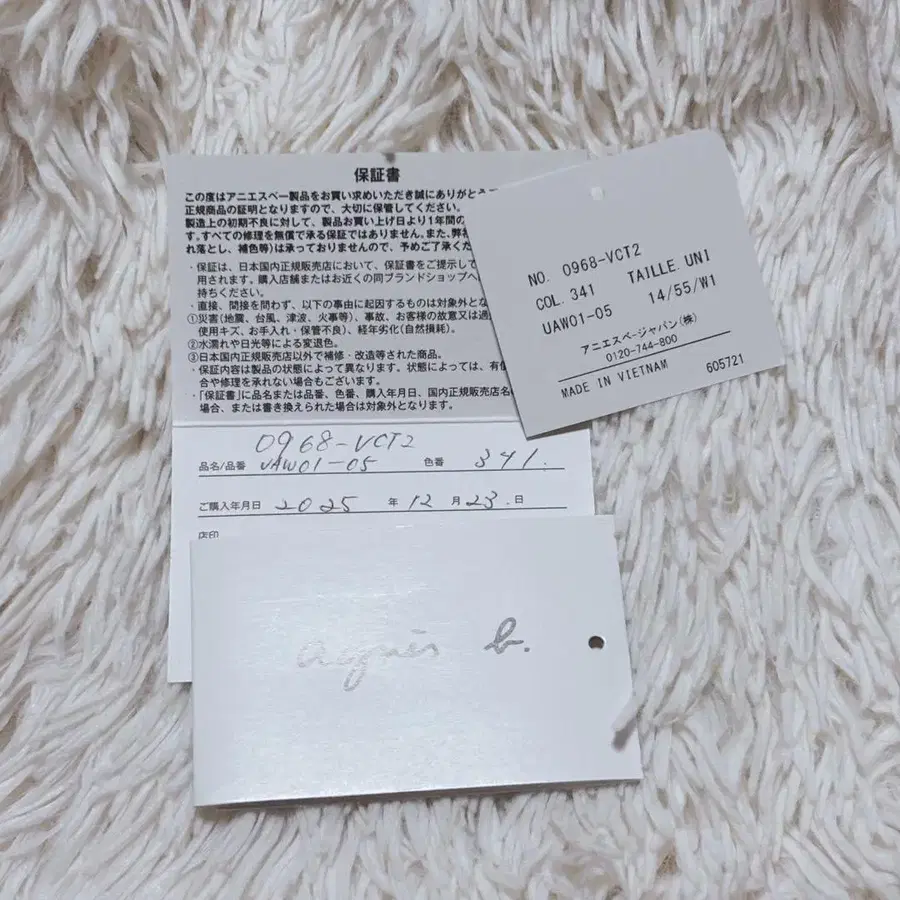 保証書
この度はアニエスベー製品をお買い求めいただき誠にありがとう
正規商品の証明となりますので、大切に保管してください。
製造上の初期不良に対して、製品お買い上げ日より1年間の
す。すべての修理を無償で承る保証ではありません。また、弊社
れ落とし、補色等)は承っておりませんので、予めご了承くだ
・保証は、日本国内正規販売店において、保証書をご提示して
用されます。購入店舗またはお近くの同ブランドショップへ
持ちください。
・直接、間接を問わず、以下の事由に起因するものは対象外とな
①災害(地震、台風、津波、火事等)、事故、お客様の故意又は過
使用キズ、お手入れ・保管不良)、経年劣化(自然損耗)。
②水濡れや日光等による変退色。
③日本国内正規販売店以外で補修・改造等された商品。
・保証内容は製品の状態によって異なります。状態によっては、有償
合や修理を承れない場合もございます。
・「保証書」に品名または品番、色番、購入年月日、国内正規販売店名
場合、または書き換えられた場合は対象外となります。
0968-VCT2
品名/品番 UAW01-05 色番 341.
ご購入年月日 2025 年 12 月 23. 日
店印
agnès b.
NO. 0968-VCT2
COL. 341 TAILLE. UNI
UAW01-05 14/55/W1
アニエスベージャパン(株)
0120-744-800
MADE IN VIETNAM 605721